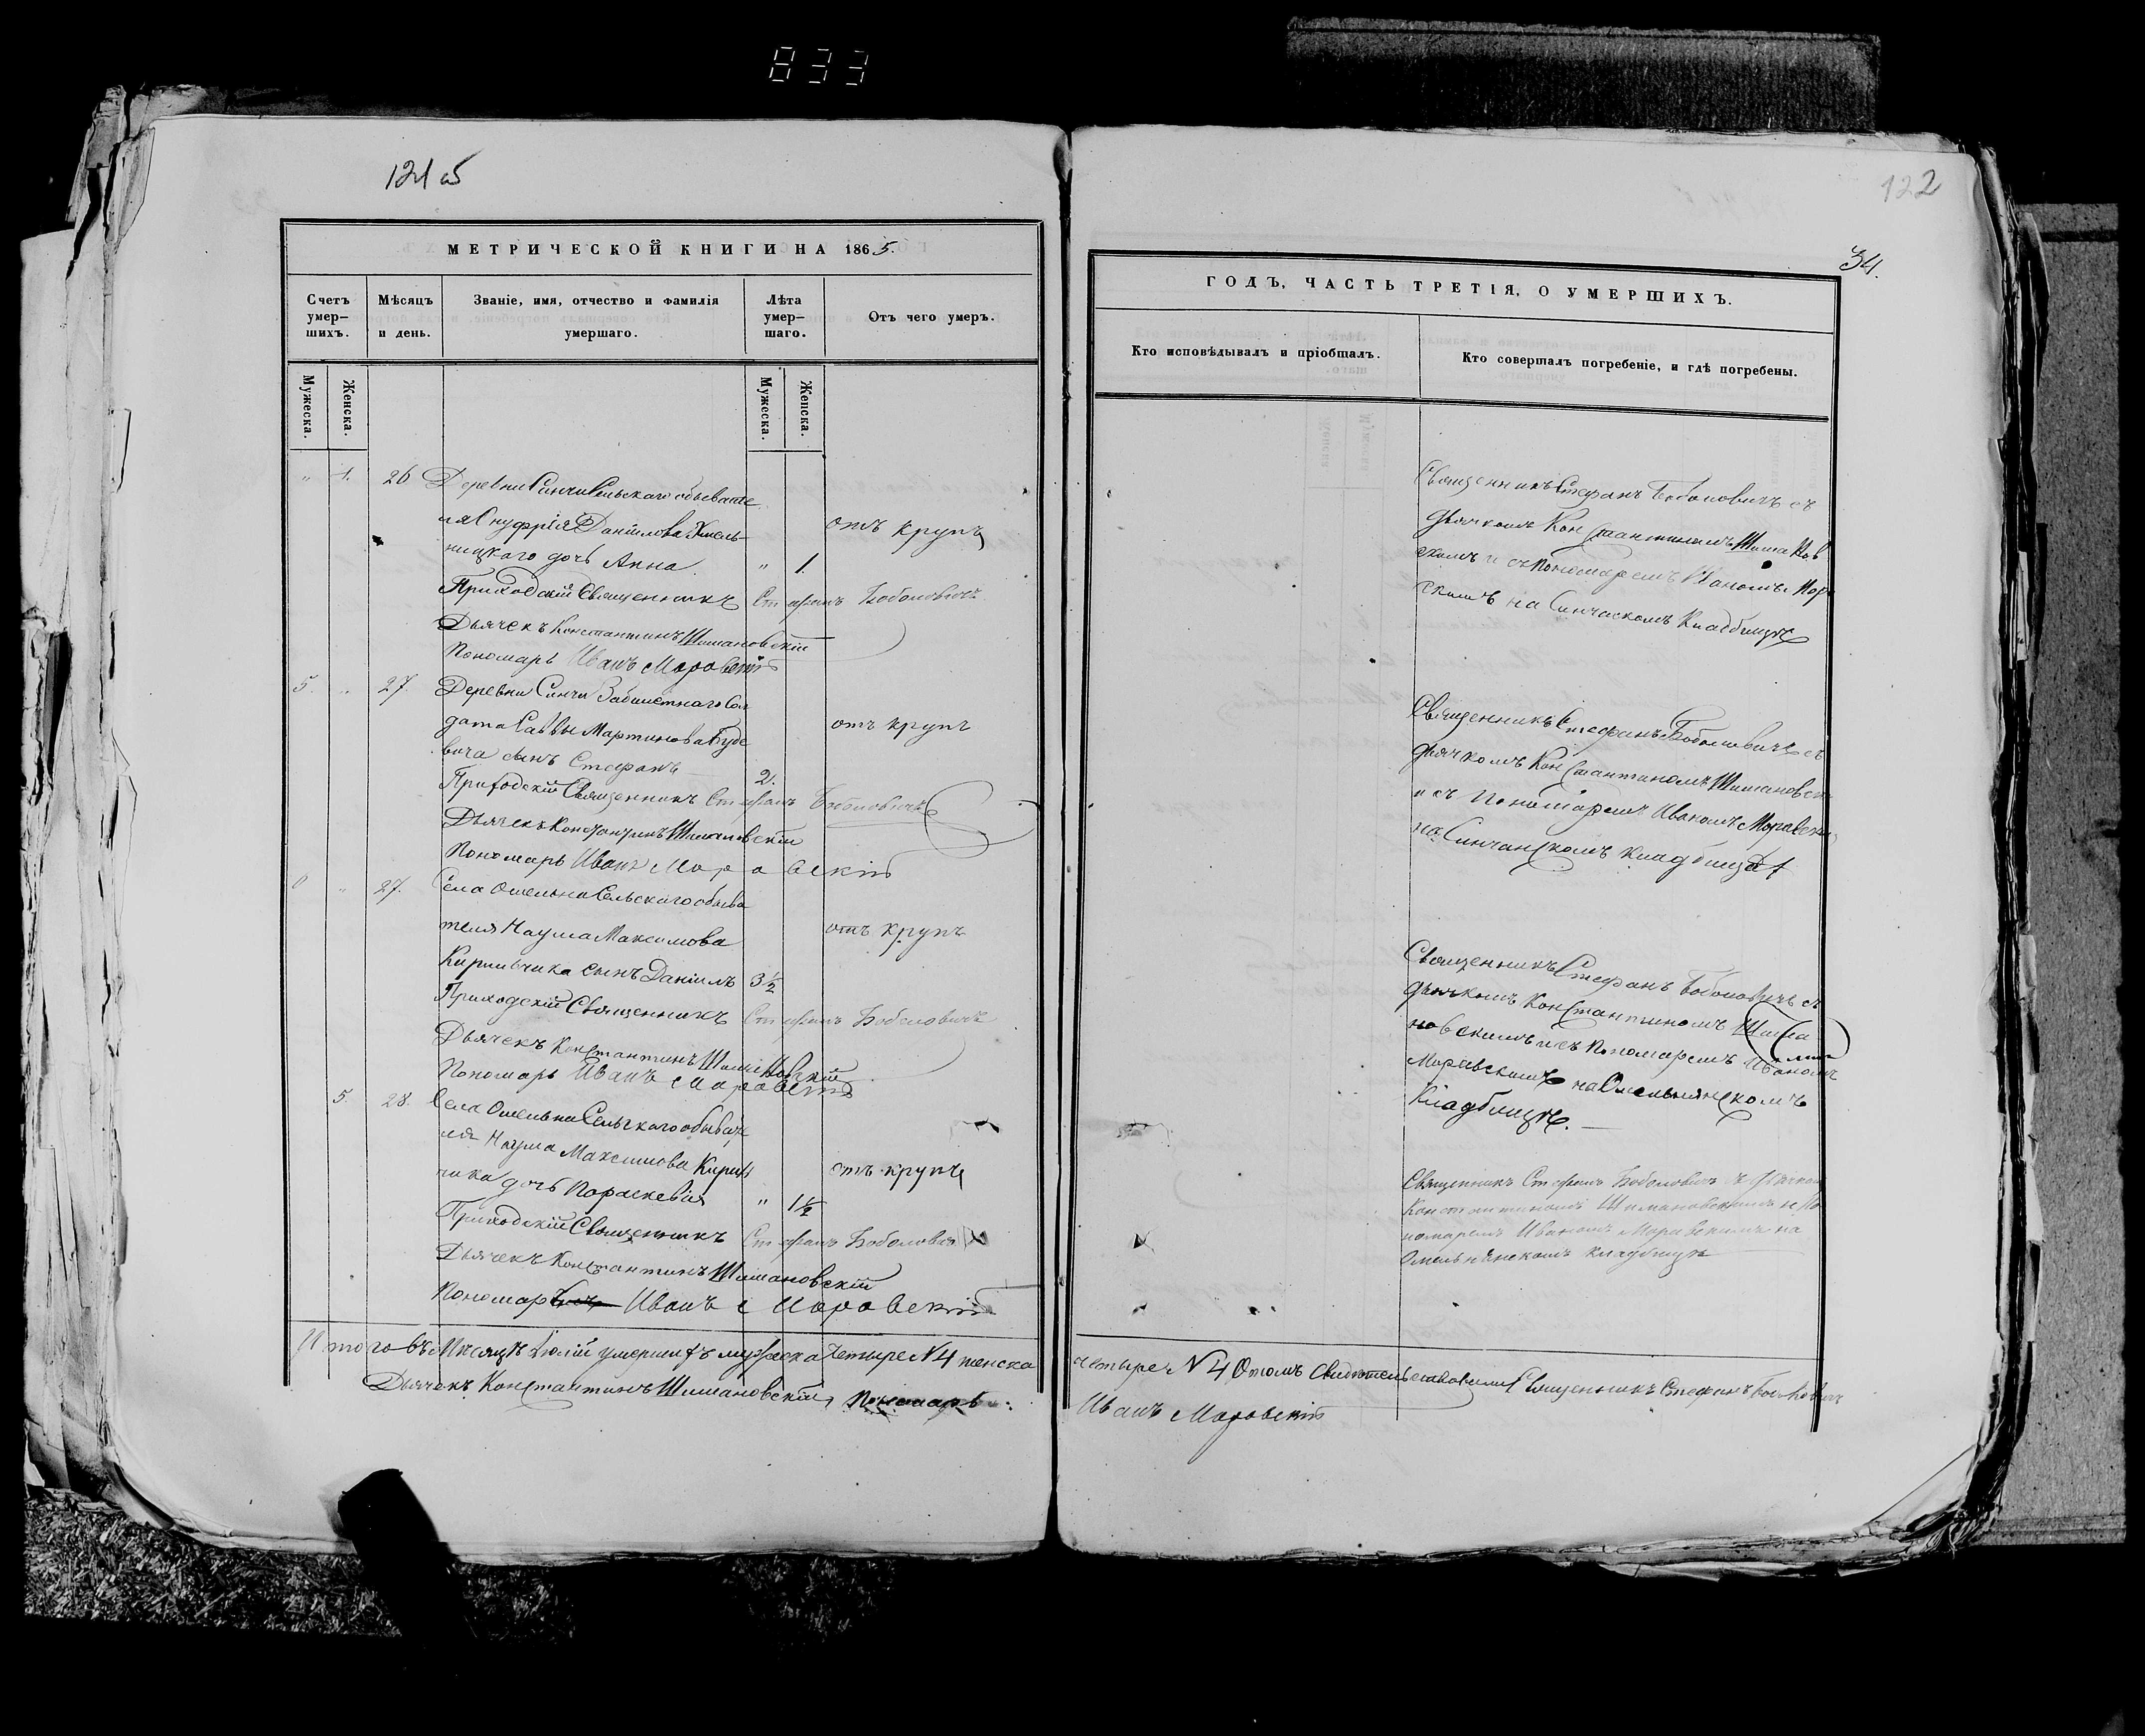 833
121 об
МЕТРИЧЕСКОЙ КНИГИ НА 1865.
Счетъ умер-шихъ.
Мѣсяцъ и день.
Званіе, имя, отчество и фамилія умершаго.
Лѣта умер-шаго.
Отъ чего умеръ.
Мужеска.
Женска.
Мужеска.
Женска.
" 26 Деревни Синчи Сельскаго обывате
ля Онуфрія Данилова Хмель- отъ крупъ
ницкаго дочь Анна. " 1.
Приходскій Священникъ Стефанъ Боболовичъ
Дьячекъ Константинъ Шимановскій
Пономарь Иванъ Моравскій
5. " 27. Деревни Синчи Забилетнаго Сол
дата Саввы Мартинова отъ крупъ
вича сынъ Стефанъ 2.
Приходскій Священникъ Стефанъ Боболовичъ
Дьячекъ Константинъ Шимановскій
Пономарь Иванъ Моравскій
" 27. Села Омельна Сельскаго обыва
теля Наума Максимова отъ крупъ
Кирильчика сынъ Даніилъ 3½
Приходскій Священникъ Стефанъ Боболовичъ
Дьячекъ Константинъ Шимановскій
Пономарь Иванъ Моравскій
5. 28. Села Омельна Сельскаго обывате
ля Наума Максимова Кириль отъ крупъ
чика дочь Параскевія " 1½
Приходскій Священникъ Стефанъ Боболовичъ
Дьячекъ Константинъ Шимановскій
Пономарь Иванъ Моравскій
Итого въ Мѣсяцѣ Іюлій умершихъ мужеска четыре №4 женска
Дьячекъ Константинъ Шимановскій, Пономарь
122
34.
ГОДЪ, ЧАСТЬ ТРЕТІЯ, О УМЕРШИХЪ.
Кто исповѣдывалъ и пріобщалъ.
Кто совершалъ погребеніе, и гдѣ погребены.
Священникъ Стефанъ Боболовичъ съ
дьячкомъ Константиномъ Шиманов
скимъ и съ Пономаремъ Иваномъ Мора
скимъ на Синчаскомъ Кладбищѣ
Священникъ Стефанъ Боболовичъ съ
дьячкомъ Константиномъ Шимановски
и съ Пономаремъ Иваномъ Моравски
на Синчанскомъ кладбищѣ
Священникъ Стефанъ Боболовичъ съ
дьячкомъ Константиномъ Шима
новскимъ и съ Пономаремъ Иваномъ
Моравскимъ на Омельнянскомъ
Кладбищѣ.
Священникъ Стефанъ Боболовичъ съ дьячком
Константиномъ Шимановскимъ и По
номаремъ Иваномъ Моравскимъ на
Омельнянскомъ кладбищѣ
четыре №4 О томъ Свидѣтельствовали Священникъ Стефанъ Боболовичъ
Иванъ Моравскій